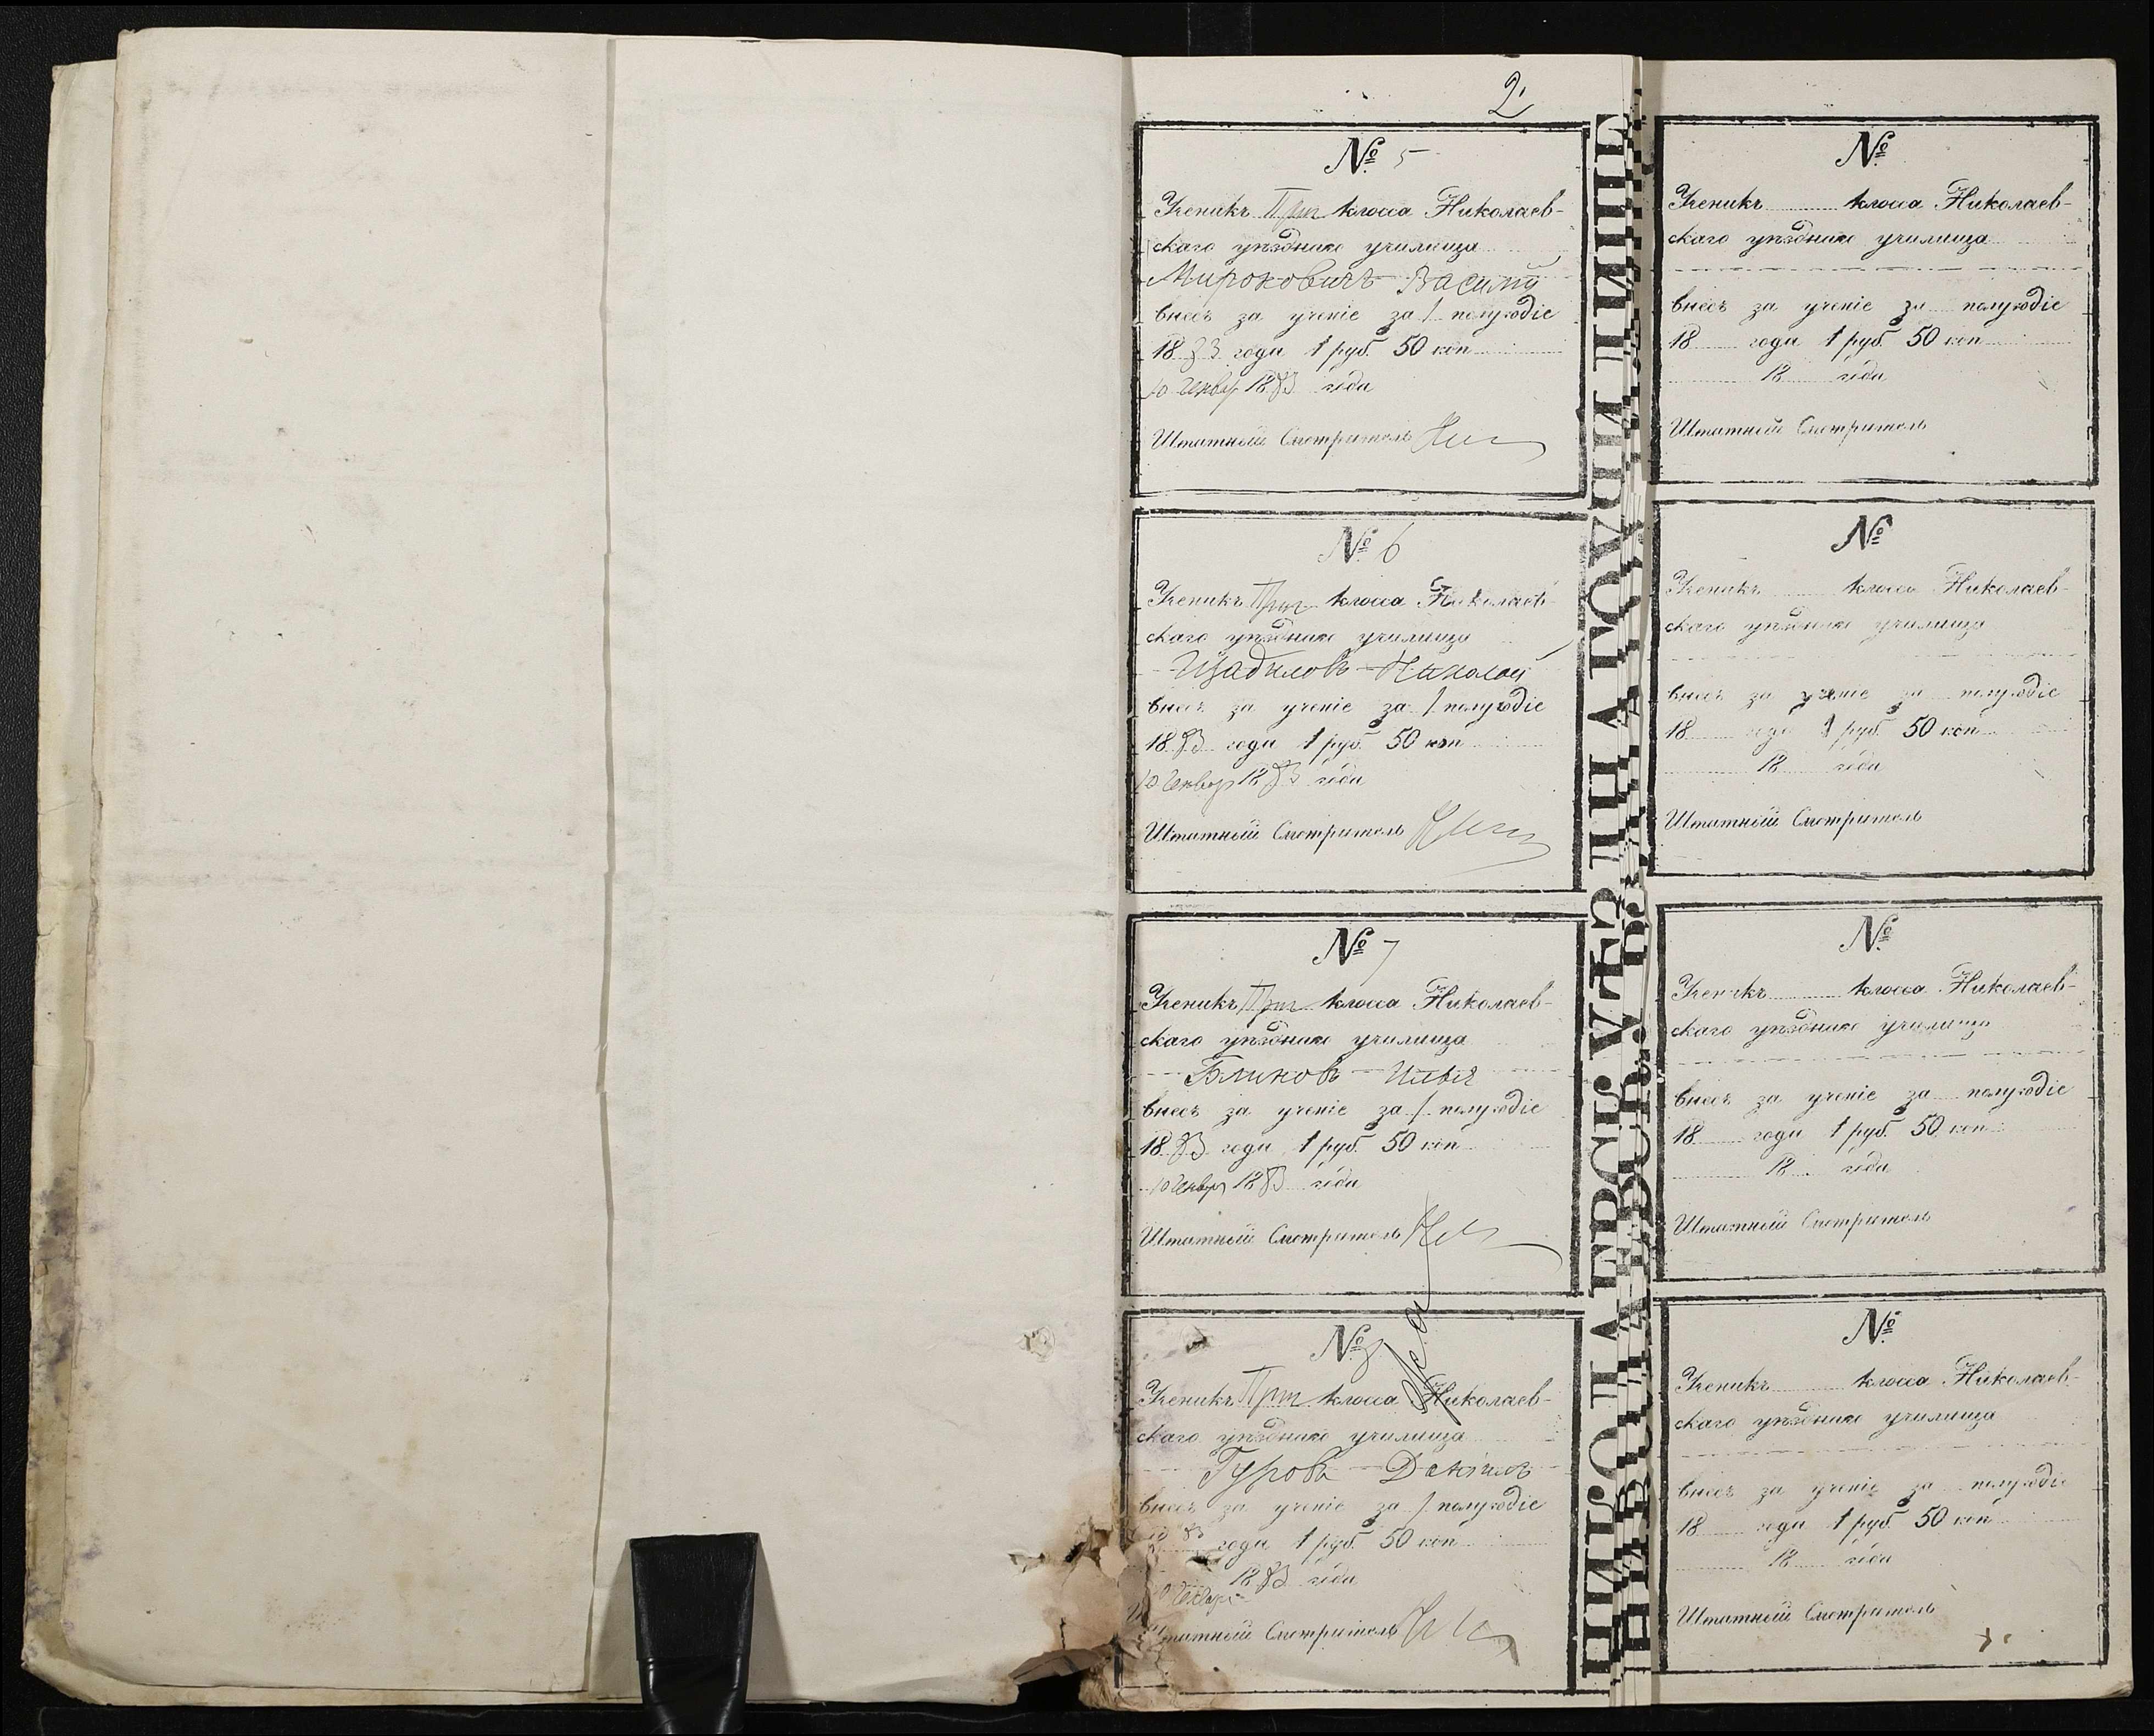 2
№ 5
Ученикъ Приг класса Николаев-
скаго уѣзднаго училища
Мироковичъ Василій
внесъ за ученіе за 1 полугодіе
1883 года 1 руб. 50 коп
10 Январ 1883 года
Штатный Смотритель
№ 6
Ученикъ Приг класса Николаев-
скаго уѣзднаго училища
Николай
внесъ за ученіе за 1 полугодіе
1883 года 1 руб. 50 коп
10 Январ 1883 года
Штатный Смотритель
№ 7
Ученикъ Приг класса Николаев-
скаго уѣзднаго училища
Блиновъ Илья
внесъ за ученіе за 1 полугодіе
1883 года 1 руб. 50 коп
10 Январ 1883 года
Штатный Смотритель
№ 8
Ученикъ Приг класса Николаев-
скаго уѣзднаго училища
Гуровъ Даніилъ
внесъ за ученіе за 1 полугодіе
83 года 1 руб. 50 коп
10 Январ 1883 года
Штатный Смотритель
№
Ученикъ класса Николаев-
скаго уѣзднаго училища
внесъ за ученіе за полугодіе
18 года 1 руб. 50 коп
18 года
Штатный Смотритель
№
Ученикъ класса Николаев-
скаго уѣзднаго училища
внесъ за ученіе за полугодіе
18 года 1 руб. 50 коп
18 года
Штатный Смотритель
№
Ученикъ класса Николаев-
скаго уѣзднаго училища
внесъ за ученіе за полугодіе
18 года 1 руб. 50 коп
18 года
Штатный Смотритель
№
Ученикъ класса Николаев-
скаго уѣзднаго училища
внесъ за ученіе за полугодіе
18 года 1 руб. 50 коп
18 года
Штатный Смотритель